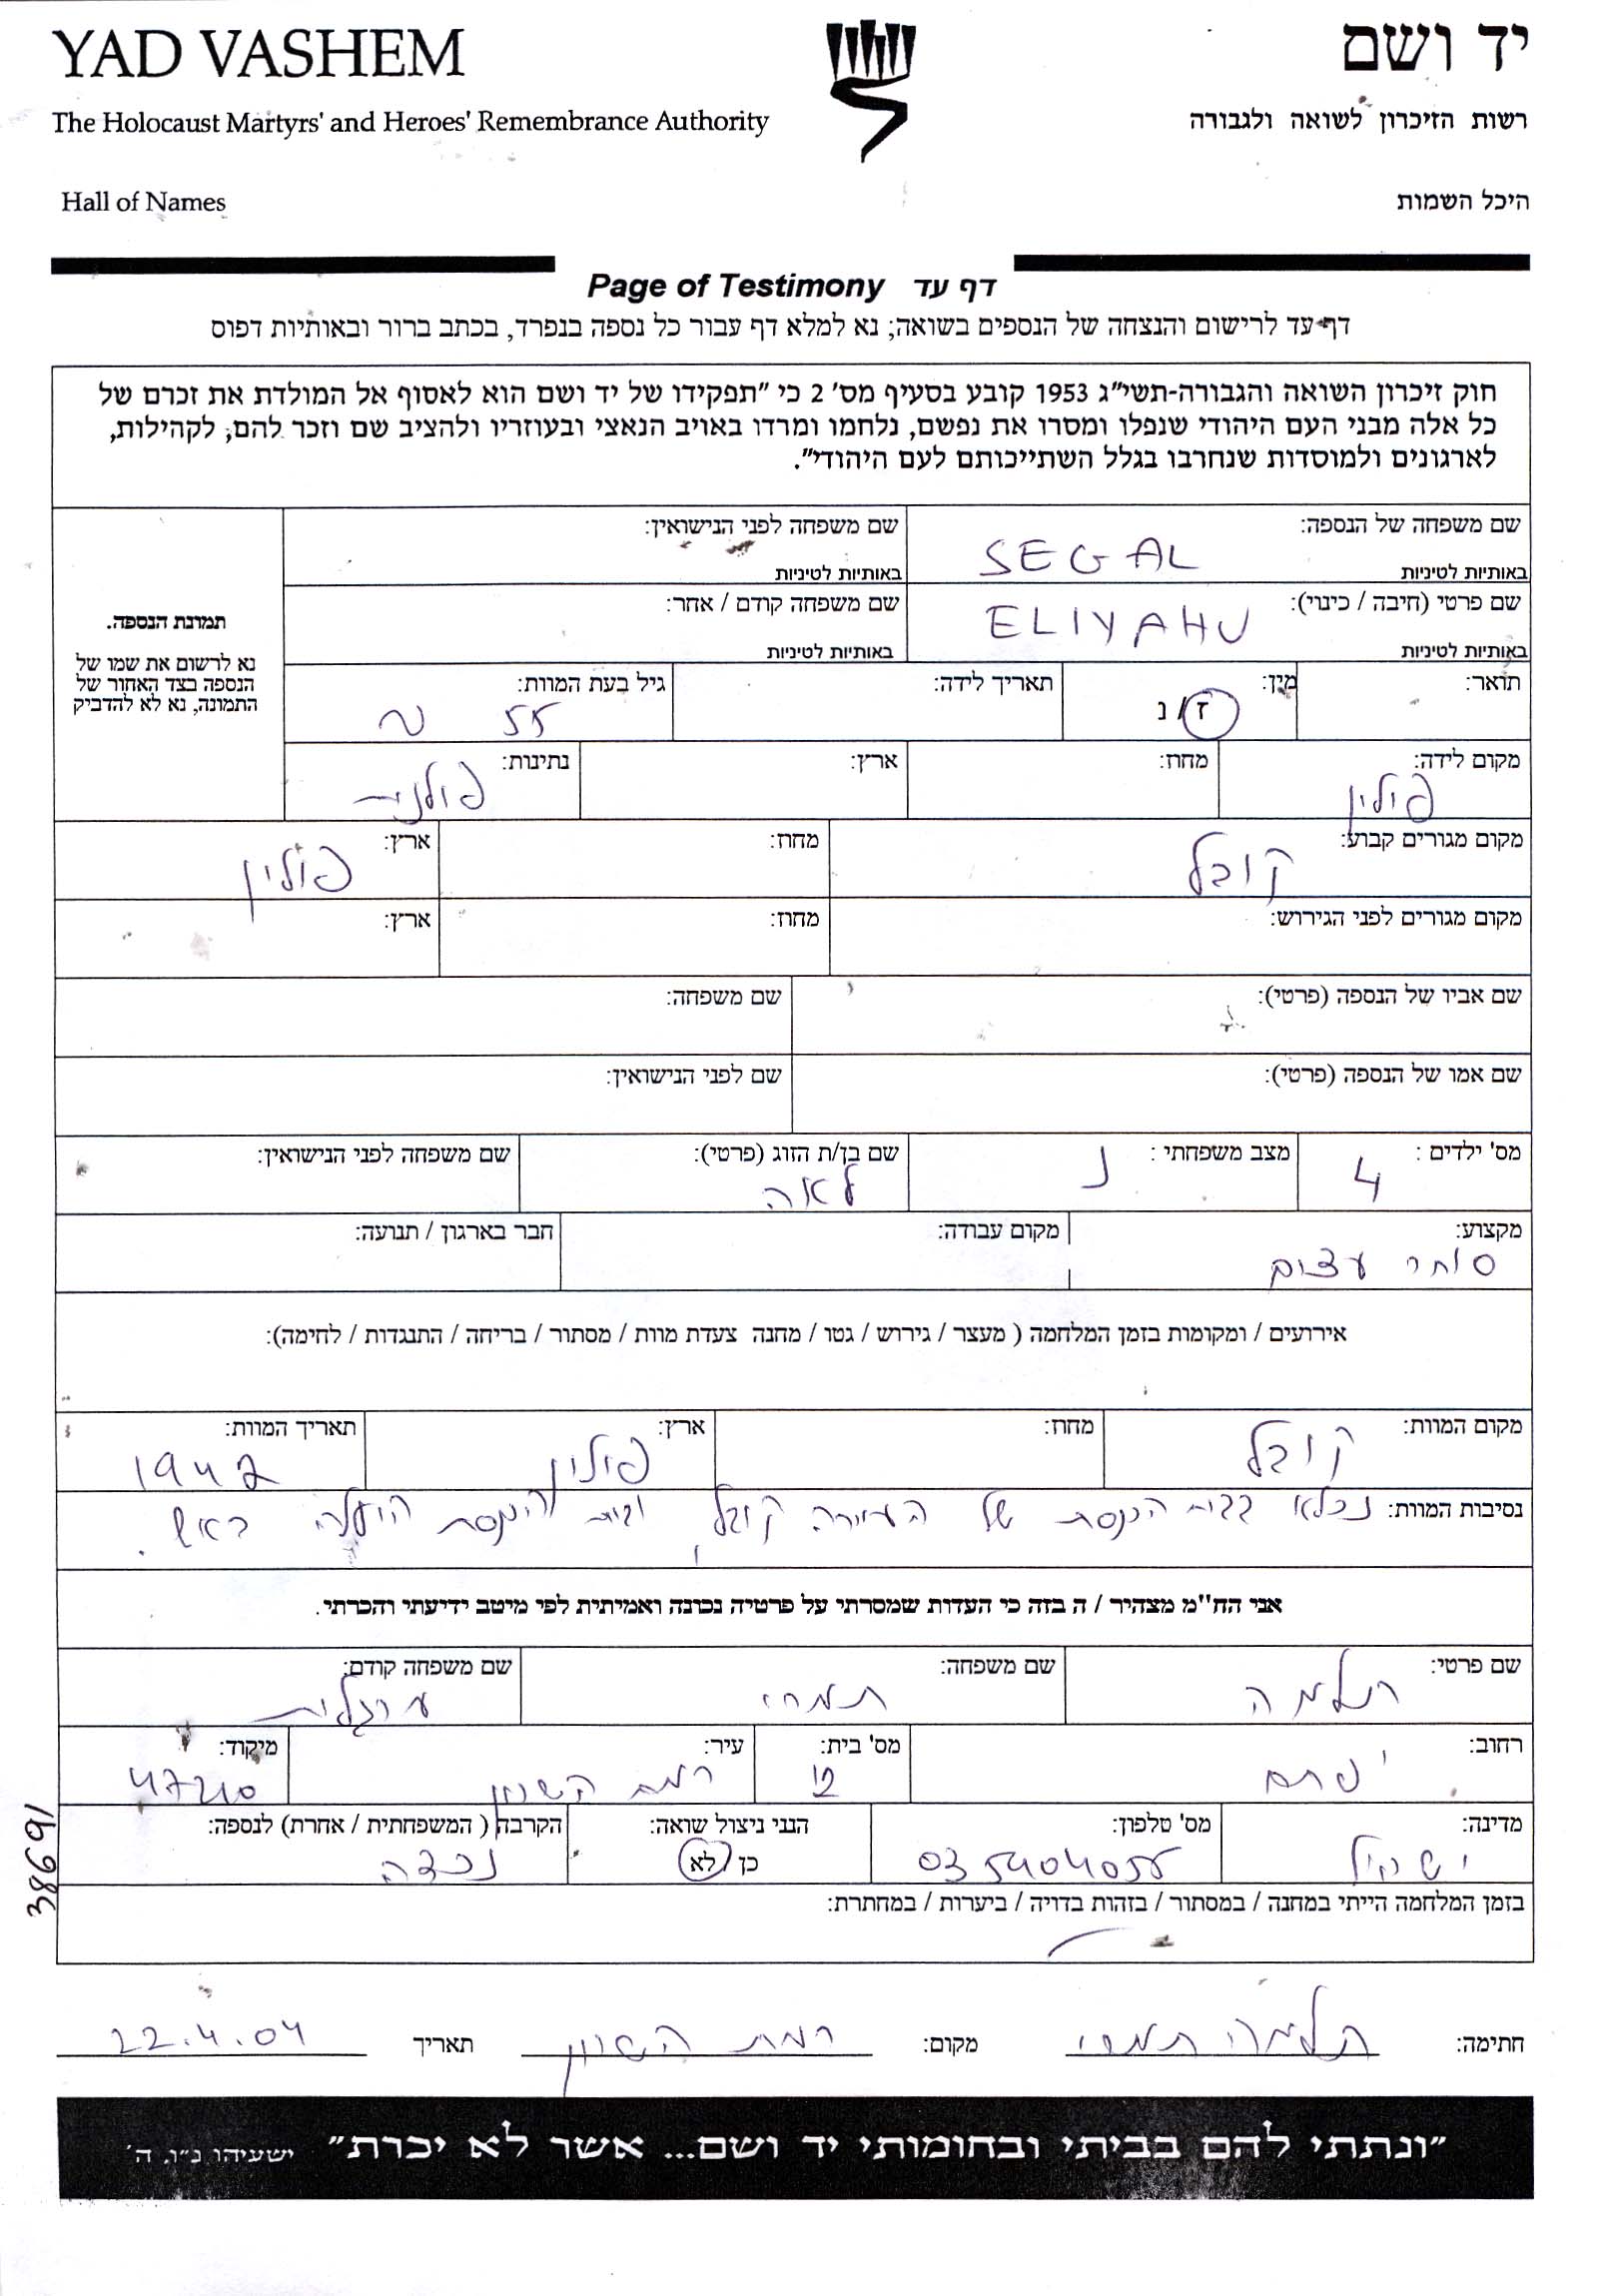 YAD VASHEM
יד ושם
The Holocaust Martyrs' and Heroes' Remembrance Authority
רשות הזיכרון לשואה ולגבורה
Hall of Names
היכל השמות
Page of Testimony דף עד
דף-עד לרישום והנצחה של הנספים בשואה; נא למלא דף עבור כל נספה בנפרד, בכתב ברור ובאותיות דפוס
חוק זיכרון השואה והגבורה-תשי״ג 1953 קובע בסעיף מס' 2 כי ״תפקידו של יד ושם הוא לאסוף אל המולדת את זכרם של
כל אלה מבני העם היהודי שנפלו ומסרו את נפשם, נלחמו ומרדו באויב הנאצי ובעוזריו ולהציב שם וזכר להם; לקהילות,
לארגונים ולמוסדות שנחרבו בגלל השתייכותם לעם היהודי״.
שם משפחה של הנספה: שם משפחה לפני הנישואין:
SEGAL
באותיות לטיניות באותיות לטיניות
שם פרטי (חיבה / כינוי): שם משפחה קודם / אחר:
ELIYAHU
באותיות לטיניות באותיות לטיניות
תמונת הנספה.
נא לרשום את שמו של
הנספה בצד האחור של
התמונה, נא לא להדביק
תואר: מין: תאריך לידה: גיל בעת המוות:
ז / נ 55 ~
מקום לידה: מחוז: ארץ: נתינות:
פולין פולנית
מקום מגורים קבוע: מחוז: ארץ:
קובל פולין
מקום מגורים לפני הגירוש: מחוז: ארץ:
שם אביו של הנספה (פרטי): שם משפחה:
שם אמו של הנספה (פרטי): שם לפני הנישואין:
מס' ילדים : מצב משפחתי : שם בן/ת הזוג (פרטי): שם משפחה לפני הנישואין:
4 נ לאה
מקצוע: מקום עבודה: חבר בארגון / תנועה:
סוחר עצים
אירועים / ומקומות בזמן המלחמה ( מעצר / גירוש / גטו / מחנה צעדת מוות / מסתור / בריחה / התנגדות / לחימה):
מקום המוות: מחוז: ארץ: תאריך המוות:
קובל פולין 1942
נסיבות המוות: נכלא בבית הכנסת של העיירה קובל, ובית הכנסת הועלה באש.
אני הח״מ מצהיר / ה בזה כי העדות שמסרתי על פרטיה נכונה ואמיתית לפי מיטב ידיעתי והכרתי.
שם פרטי: שם משפחה: שם משפחה קודם:
תלמה תמרי מרגלית
רחוב: מס' בית: עיר: מיקוד:
12 רמת השרון 47210
מדינה: מס' טלפון: הנני ניצול שואה: הקרבה ( המשפחתית / אחרת) לנספה:
ישראל 03 5404055 כן / לא נכדה
בזמן המלחמה הייתי במחנה / במסתור / בזהות בדויה / ביערות / במחתרת:
38691
חתימה: תלמה תמרי מקום: רמת השרון תאריך 22.4.04
״ונתתי להם בביתי ובחומותי יד ושם... אשר לא יכרת״ ישעיהו נ״ו, ה'